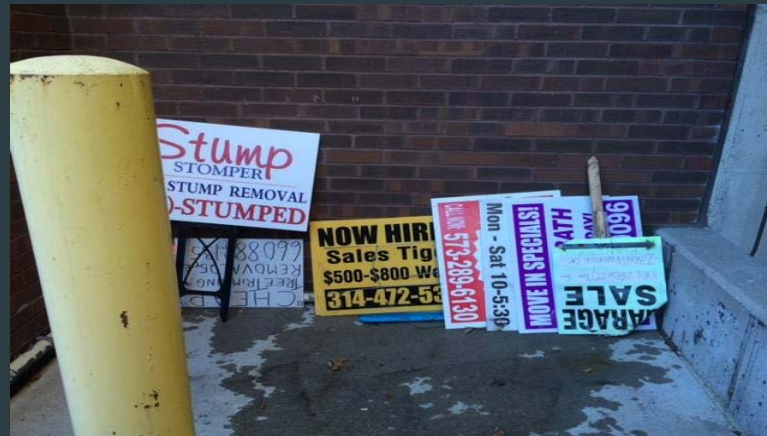 Stump
STOMPER
STUMP REMOVAL
-STUMPED
CHEAP
TREE TRIMMING
REMOVAL
NOW HIRI
Sales Tig
$500-$800 We
314-472-53
CALL ON
573-289-6130
Mon - Sat 10-5:30
MOVE IN SPECIALS!
BATH
096
GARAGE
SALE